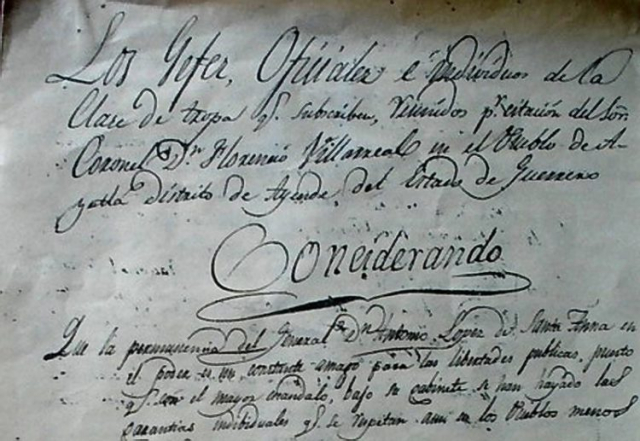 Los Gefes, Oficiales e individuos de la
Clase de tropa q.e subscriben, reunidos p.r citacion del Sor.
Coronel D.n Florencio Villarreal en el Pueblo de A-
yutla distrito de Ayende del Estado de Guerrero
Considerando
Que la permanencia del General D.n Antonio Lopez de Santa Anna en
el poder es un constante amago para las libertades publicas, puesto
q.e con el mayor escándalo, bajo su cabinete se han hayado las
garantias individuales q.e se respetan aun en los Pueblos menos